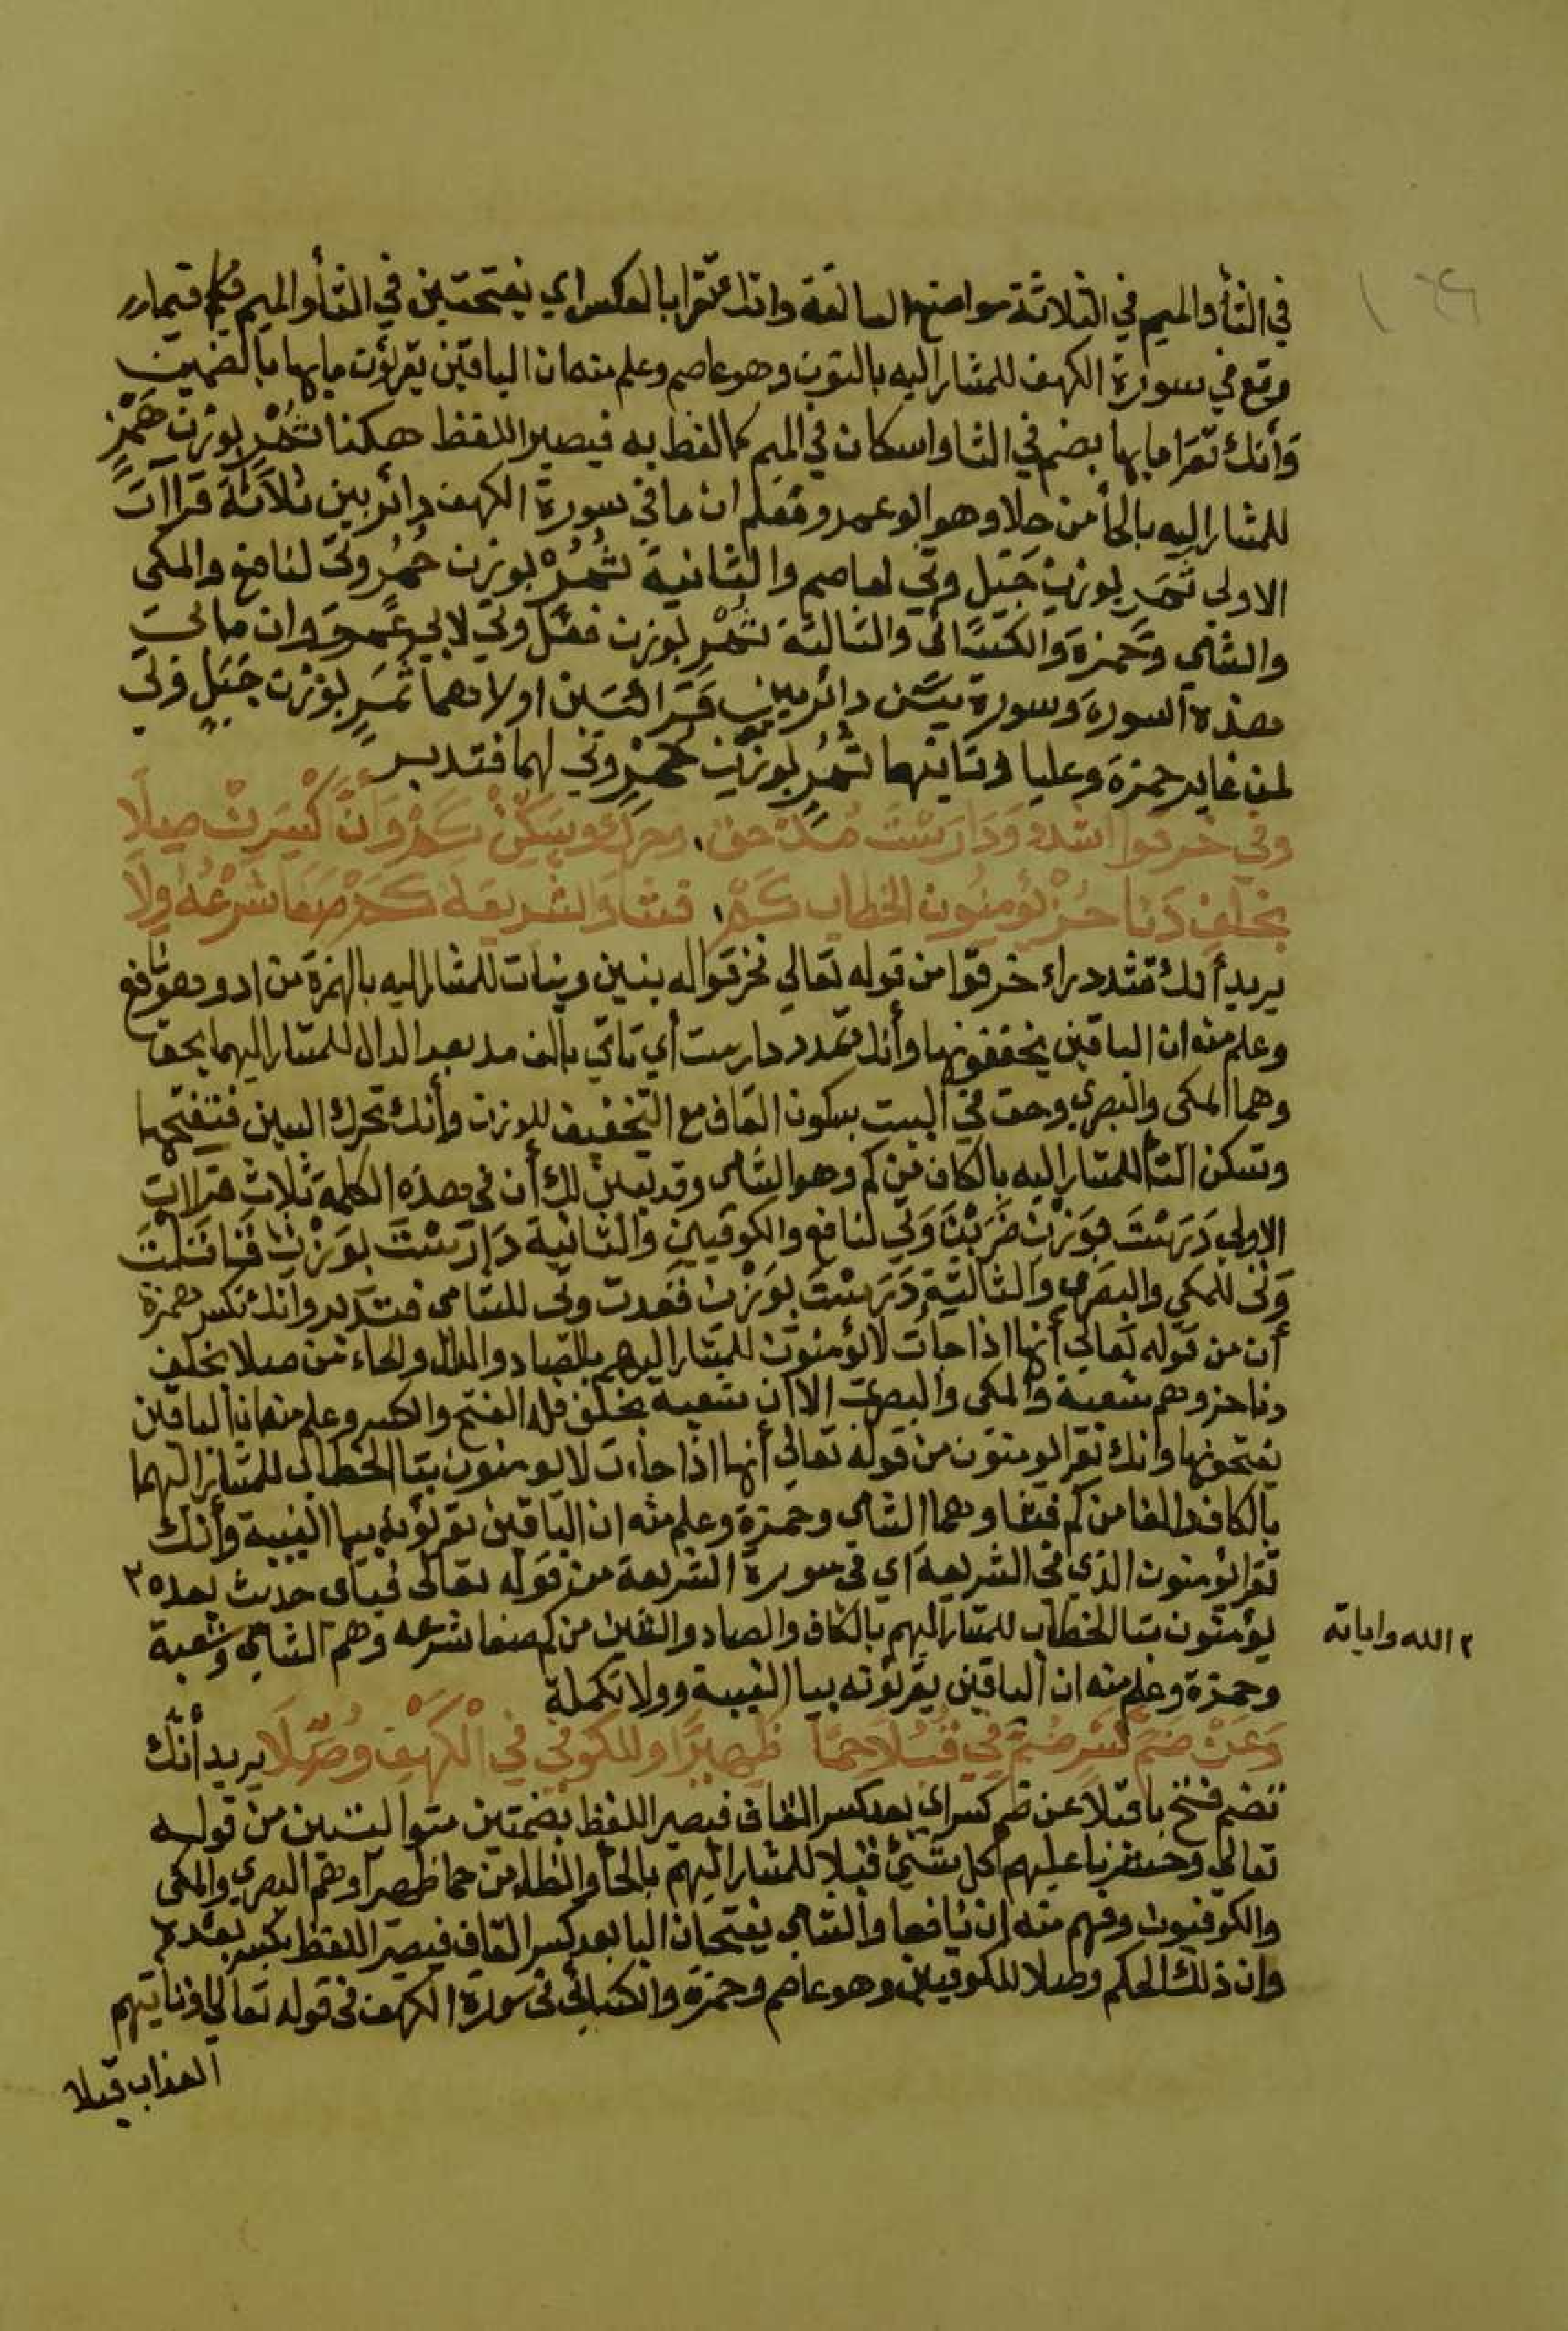 في الثا والميم في الثلاثة مواضع السالفة وانك تقرا بالعكس اي بفتحتين في الثا والميم فيما
وقع في سورة الكهف للمشار اليه بالنون وهو عاصم وعلم منه ان الباقين يقرؤن ما بها بالضمين
وَأنك تقرا ما بها بضم في الثا واسكان في الميم كما لفظ به فيصير اللفظ هكذا ثُمْرٍ بوزن هَمْزٍ
للمشار اليه بالحأ من حلا وهو ابو عمرو فعلم ان ما في سورة الكهف دائر بين ثلاثة قراات
الاولي ثَمَرٍ بوزن جَبَل وهي لعاصم والثانية ثُمُرْ بوزن حُمُر وهي لنافع والمكي
والشامي وحمزة والكسائي والثالثة ثُمْرٍ بوزن قفل وهي لابي عمرو وان ما في
هذه السورة وسورة يس دائر بين قرائتين اولاهما ثَمَرٍ بوزن جَبَلٍ وهي
لمن غاير حمزة وعليا وثانيهما ثُمُرٍ بوزن حُمُرٍ وهي لهما فتدبر
وفي خرقوا اشدد وَدَارَسْتَ مُدَّ حق، وحرك وسكن كم وَأنَّ كُسِرَتْ صِلَا
بخلفٍ دَنا حُزْ يُؤمنون الخطاب كَم، فشا والشريعة كَمْ صَفا شَرْعُهُ وِلَا
يريد أنك تشدد راء خرقوا من قوله تعالي وخرقوا له بنين وبنات للمشار اليه بالهمزة من ادد وهو نافع
وعلم منه ان الباقين يخففونها وأنك تمدد دارست أي تاتي بالف مد بعد الدال للمشار اليهما بحق
وهما المكي والبصري وحق في البيت بسكون القاف مع التخفيف للوزن وأنك تحرك السين فتفتحها
وتسكن التأ للمشار اليه بالكاف من كم وهو الشامي وقد تبين لك أن في هذه الكلمة ثلاث قراات
الاولي دَرَسْتَ بوَزْن ضَرَبْتَ وَهي لنافع والكوفيين والثانية دَارَسْتَ بوَزْن قَاتَلْتَ
وَهي للمكي والبصري والثالثة دَرَسَتْ بوَزْن قَعدت وهي للشامي فتدبر وانك تكسر همزة
أن من قوله تعالي أنها اذا جات لا يؤمنون للمشار اليهم بالصاد والدال والحاء من صلا بخلف
دنا حز وهم شعبة والمكي والبصري الا ان شعبة بخلف فله الفتح والكسر وعلم منه ان الباقين
يفتحونها وانك تقرا يومنون من قوله تعالي أنها اذا جاءت لا يومنون بتا الخطاب للمشار اليهما
بالكاف والفا من كم فشا وهما الشامي وحمزة وعلم منه ان الباقين يقرؤنه بيا الغيبة وأنك
تقرا يؤمنون الذي في الشريعة اي في سورة الشريعة من قوله تعالي فباي حديث بعد ٢
٢ الله واياته
يؤمنون بتا الخطاب للمشار اليهم بالكاف والصاد والشين من كم صفا شرعه وهم الشامي وشعبة
وحمزة وعلم منه ان الباقين يقرؤنه بيا الغيبة وولا تكملة
وَعَنْ ضم كَسْرٍ ضُمَّ في قُبُلًا حمَا ظَهِيرًا وللكوفي في الكَهْفِ وُصِّلَا يريد أنك
تضم فتح با قبلا عن ضم كسر اي بعد كسر القاف فيصير اللفظ بضمتين متواليتين من قوله
تعالي وحشرنا عليهم كل شئ قبلا للمشار اليهم بالحأ والظاء من حما ظهيرا وهم البصري والمكي
والكوفيون وفهم منه ان نافعا والشامي يفتحان البا بعد كسر القاف فيصير اللفظ بكسر بعده
وان ذلك الحكم وصلا للكوفيين وهو عاصم وحمزة والكسائي في سورة الكهف في قوله تعالي او ياتيهم
العذاب قبلا